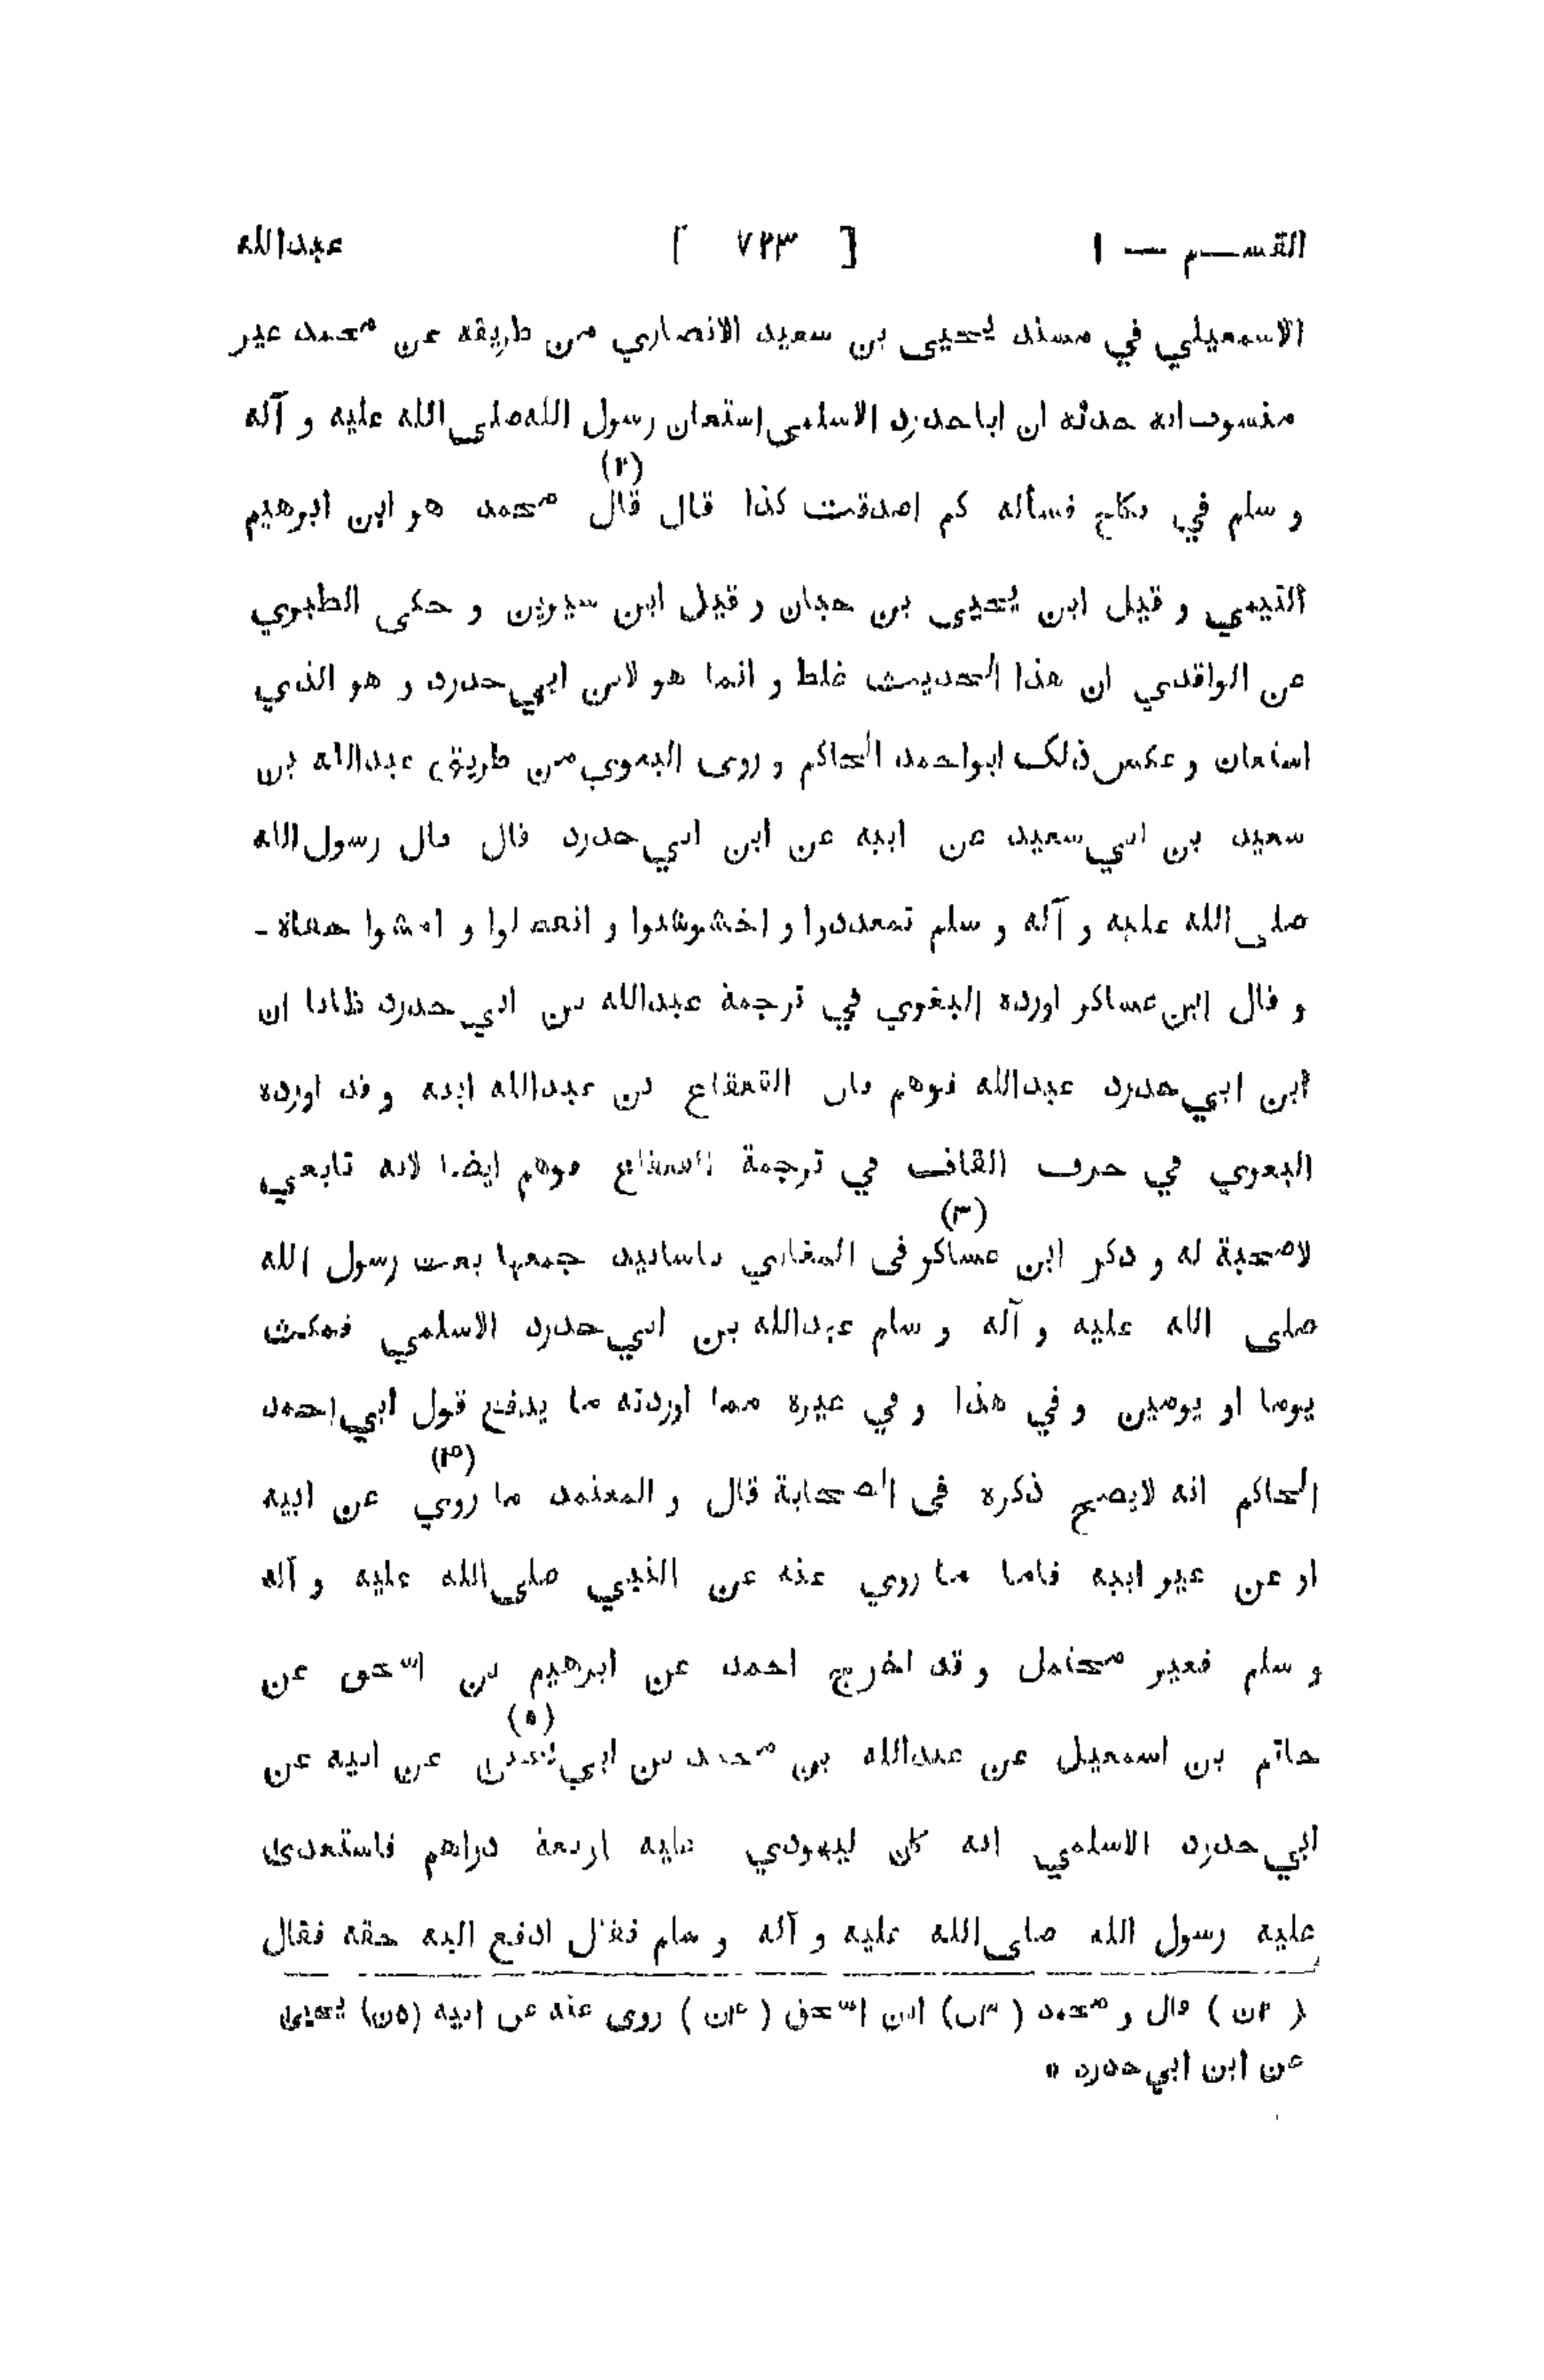 القسم — ١ [ ٧٢٣ ] عبدالله
الاسمعيلي في مسند يحيى بن سعيد الانصاري من طريقه عن محمد غير
منسوب انه حدثه ان ابا حدرد الاسلمي استعان رسول الله صلى الله عليه و آله
و سلم في نكاح فسأله كم اصدقت كذا قال قال (٢) محمد هو ابن ابرهيم
التيمي و قيل ابن يحيى بن حبان و قيل ابن سيرين و حكى الطبري
عن الواقدي ان هذا الحديث غلط و انما هو لابن ابي حدرد و هو الذي
استعان و عكس ذلك ابو احمد الحاكم و روى البغوي من طريق عبدالله بن
سعيد بن ابي سعيد عن ابيه عن ابن ابي حدرد قال قال رسول الله
صلى الله عليه و آله و سلم تمعددوا و اخشوشنوا و انتضلوا و امشوا حفاة -
و قال ابن عساكر اورده البغوي في ترجمة عبدالله بن ابي حدرد ظانا ان
ابن ابي حدرد عبدالله فوهم فان القعقاع بن عبدالله ابنه و قد اورده
البغوي في حرف القاف في ترجمة القعقاع فوهم ايضا لانه تابعي
لا صحبة له و ذكر ابن عساكر (٣) فى المغازي باسانيد جمعها بعث رسول الله
صلى الله عليه و آله و سلم عبدالله بن ابي حدرد الاسلمي فمكث
يوما او يومين و في هذا و في غيره مما اوردته ما يدفع قول ابي احمد
الحاكم انه لا يصح ذكره فى الصحابة قال و المعتمد ما روي (٤) عن ابيه
او عن غير ابيه فاما ما روي عنه عن النبي صلى الله عليه و آله
و سلم فغير محتمل و قد اخرج احمد عن ابرهيم بن اسحق عن
حاتم بن اسمعيل عن عبدالله بن محمد بن ابي يحيى (٥) عن ابيه عن
ابي حدرد الاسلمي انه كان ليهودي عليه اربعة دراهم فاستعدى
عليه رسول الله صلى الله عليه و آله و سلم فقال ادفع اليه حقه فقال
( ٢ن ) قال و محمد ( ٣ن) ابن اسحق ( ٤ن ) روى عنه عن ابيه (٥ن) يحيى
عن ابن ابي حدرد *